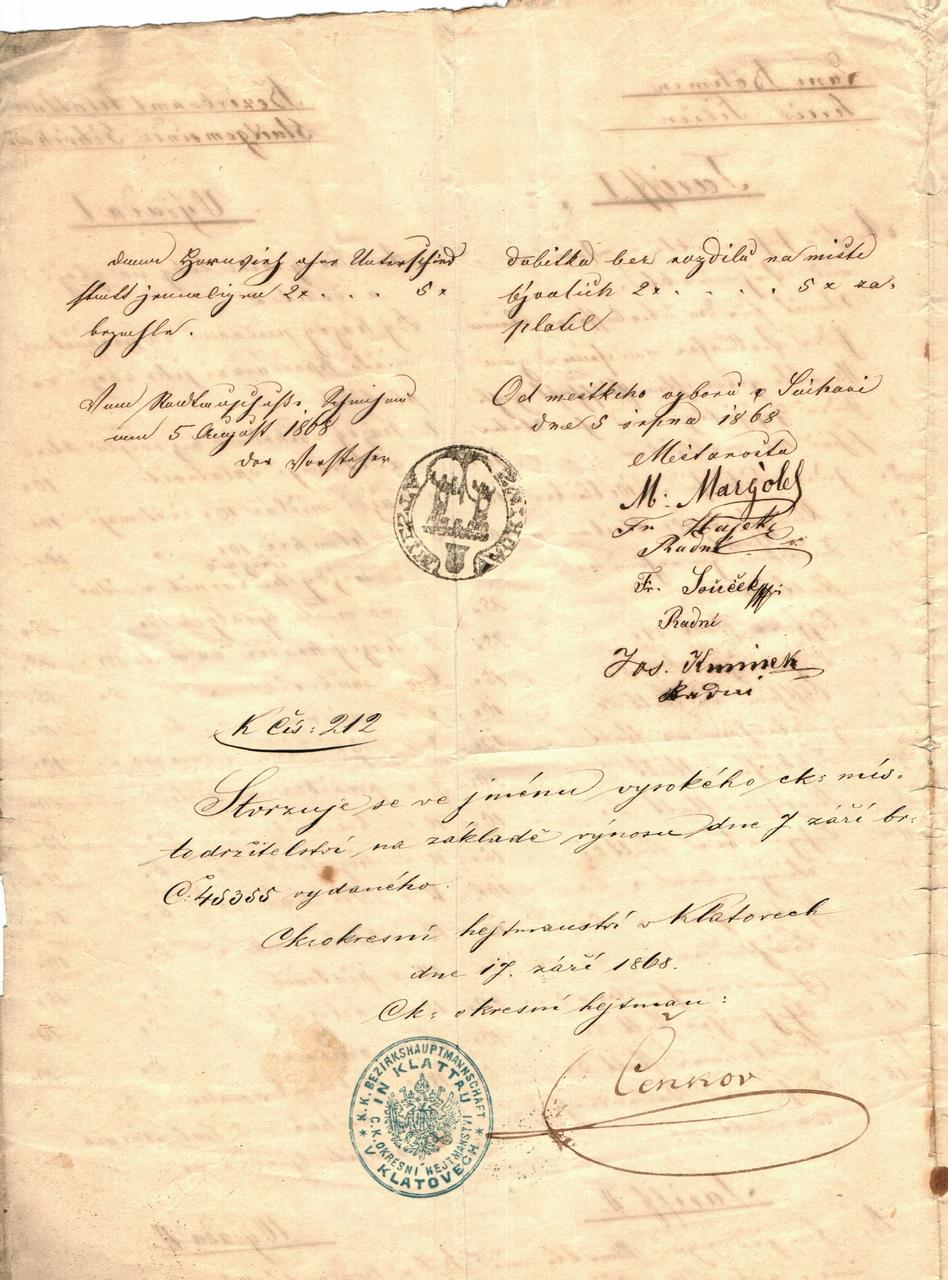 dann Hornvieh ohne Unterschied
statt jemaligen 2x . . . . 5 x
bezahle.
Vom Stadtausschuße
am 5 August 1868
der Vorsteher
dobitka bez rozdilu na miste
byvalich 2x . . . . . 5 x za-
platil
Od mestkeho vyboru v
dne 5 srpna 1868
Mestanosta
M. Margoles
Fr. Hajek
Radni
Fr. Souček
Radní
Jos.
Radni
K Čís: 212
Stvrzuje se ve jménu vysokého ck: mís-
todržitelství na základě výnosu dne 7 září br:
Č: 45355 vydaného.
Ck okresní hejtmanství v Klatovech
dne 17. září 1868.
Ck: okresní hejtman:
Cenkov
K. K. BEZIRKSHAUPTMANNSCHAFT
IN KLATTAU
C. K. OKRESNÍ HEJTMANSTVÍ
V KLATOVECH